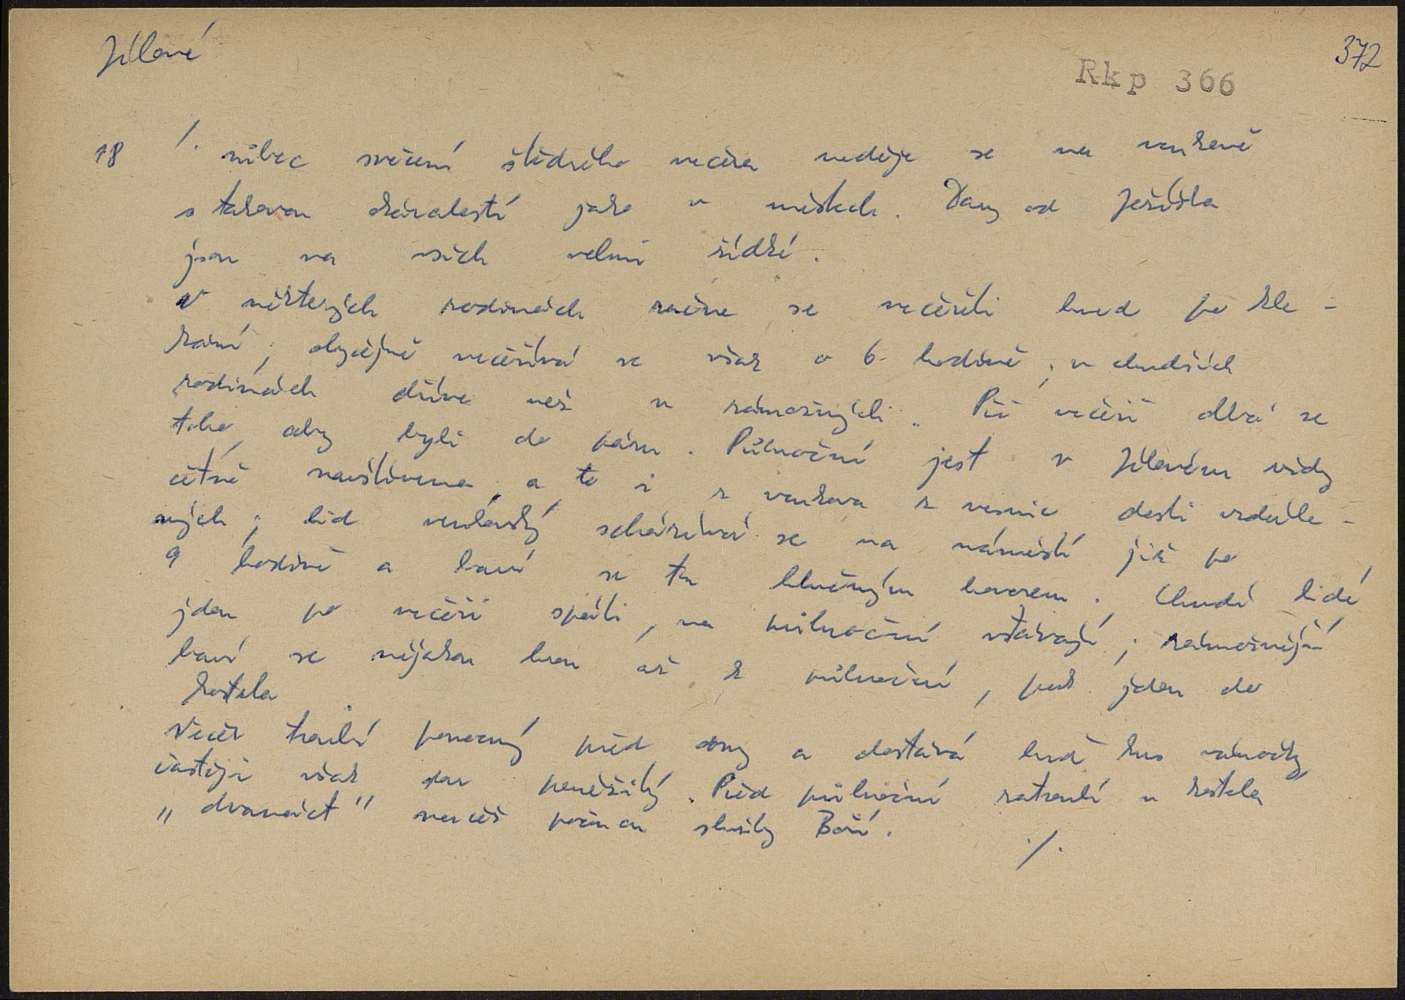 Jílové
372
Rkp 366
18 /. vůbec svěcení štědrého večera neděje se na venkově
s takovou okázalostí jako v městech. Dary od Ježíška
jsou na vsích velmi řídké.
V některých rodinách začne se večeřeti hned po kle-
kání, obyčejně večeřívá se však o 6. hodině, v chudších
rodinách dříve než v zámožných. Při večeři dbá se
toho, aby byli do páru. Půlnoční jest v Jílovém vždy
četně navštívena a to i z venkova z vesnic dosti vzdále-
ných; lid venkovský scházívá se na náměstí již po
9 hodině a baví se tu hlučným hovorem. Chudí lidé
jdou po večeři spáti, na půlnoční vstávají; zámožnější
baví se nějakou hrou až k půlnoční, pak jdou do
kostela
Večer troubí ponocný před domy a dostává buď kus vánočky
častěji však pou penězitý. Před půlnoční zatroubí u kostela
„dvanáct" načež počnou služby Boží.
./.